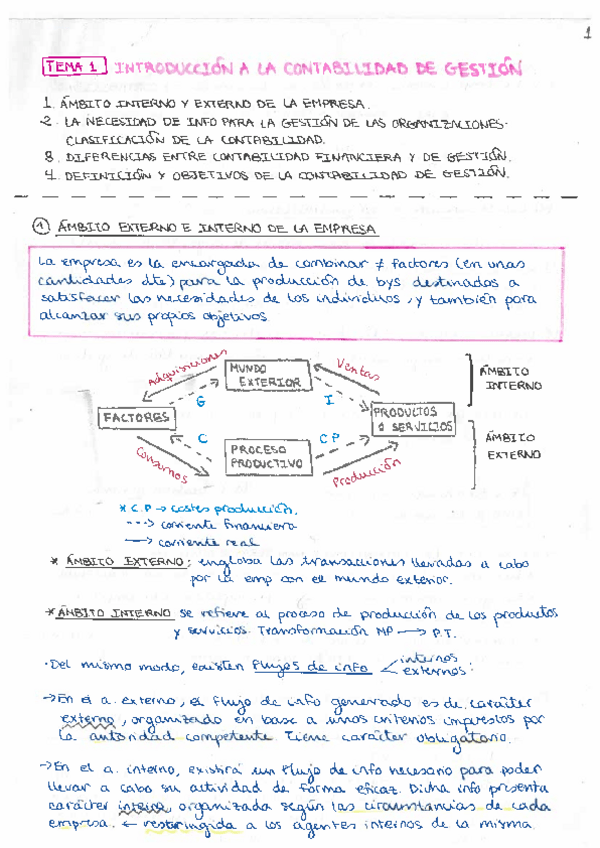 1
TEMA 1 INTRODUCCIÓN A LA CONTABILIDAD DE GESTIÓN
1. ÁMBITO INTERNO Y EXTERNO DE LA EMPRESA.
2. LA NECESIDAD DE INFO PARA LA GESTIÓN DE LAS ORGANIZACIONES-
CLASIFICACIÓN DE LA CONTABILIDAD.
3. DIFERENCIAS ENTRE CONTABILIDAD FINANCIERA Y DE GESTIÓN.
4. DEFINICIÓN Y OBJETIVOS DE LA CONTABILIDAD DE GESTIÓN.
1 ÁMBITO EXTERNO E INTERNO DE LA EMPRESA
La empresa es la encargada de combinar ≠ factores (en unas
cantidades dte) para la producción de bys destinados a
satisfacer las necesidades de los individuos, y también para
alcanzar sus propios objetivos.
Adquisiciones
MUNDO EXTERIOR
Ventas
ÁMBITO INTERNO
G
I
FACTORES
PRODUCTOS O SERVICIOS
C
CP
ÁMBITO EXTERNO
Consumos
PROCESO PRODUCTIVO
Producción
* C.P → costes producción.
---> corriente financiera
→ corriente real
* ÁMBITO EXTERNO: engloba las transacciones llevadas a cabo
por la emp con el mundo exterior.
* ÁMBITO INTERNO se refiere al proceso de producción de los productos
y servicios. Transformación MP → P.T.
·Del mismo modo, existen flujos de info < internos
externos:
→ En el a. externo, el flujo de info generado es de carácter
externo, organizado en base a unos criterios impuestos por
la autoridad competente. Tiene carácter obligatorio.
→ En el a. interno, existirá un flujo de info necesario para poder
llevar a cabo su actividad de forma eficaz. Dicha info presenta
carácter interno, organizada según las circunstancias de cada
empresa. ← restringida a los agentes internos de la misma.